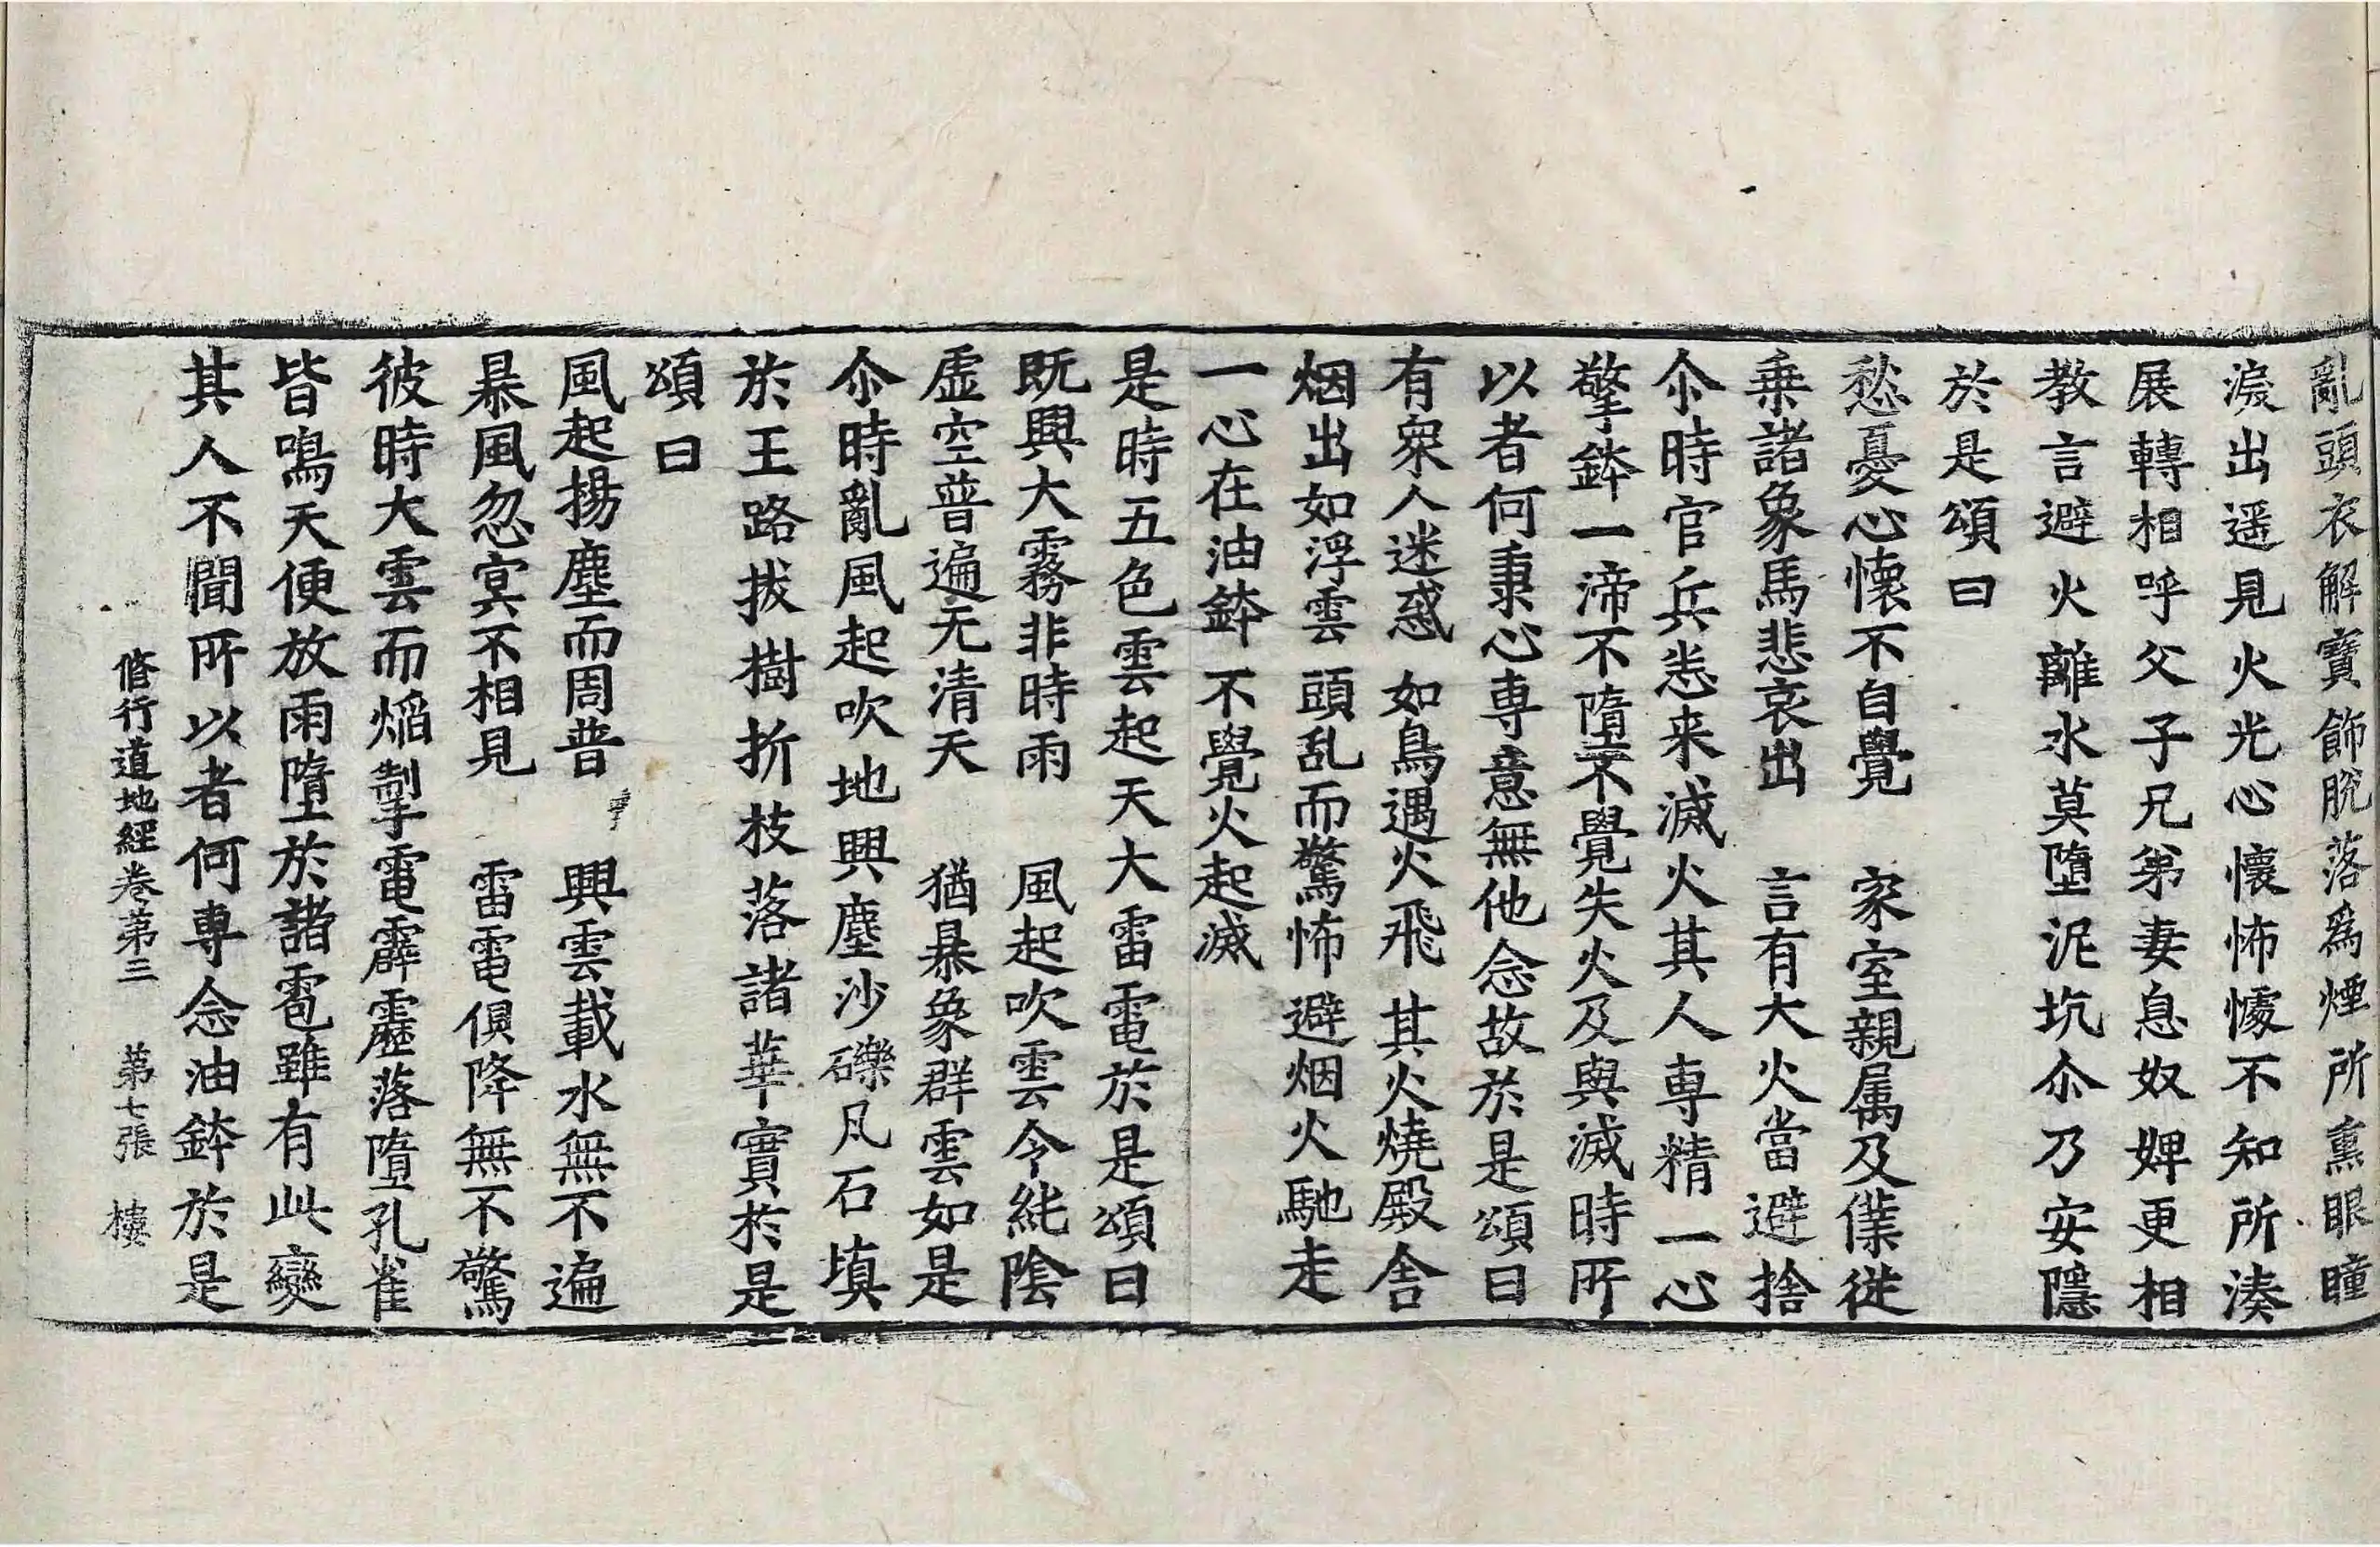 亂頭衣解寶飾脫落爲煙所熏眼瞳
淚出遥見火光心懷怖懅不知所湊
展轉相呼父子兄弟妻息奴婢更相
教言避火離水莫墮泥坑尒乃安隱
於是頌曰
愁憂心懷不自覺　家室親属及僕從
乗諸象馬悲哀出　言有大火當避捨
尒時官兵悉来滅火其人專精一心
擎鉢一渧不墮不覺失火及與滅時所
以者何秉心專意無他念故於是頌曰
有衆人迷惑　如鳥遇火飛　其火燒殿舎
烟出如浮雲　頭乱而驚怖　避烟火馳走
一心在油鉢　不覺火起滅
是時五色雲起天大雷電於是頌曰
既興大霧非時雨　風起吹雲令純陰
虚空普遍无清天　猶暴象群雲如是
尒時亂風起吹地興塵沙礫凡石填
於王路拔樹折枝落諸華實於是
頌曰
風起揚塵而周普　興雲載水無不遍
暴風忽冥不相見　雷電俱降無不驚
彼時大雲而焰掣電霹靂落墮孔雀
皆鳴天便放雨墮於諸雹雖有此變
其人不聞所以者何專念油鉢於是
脩行道地經卷第三　第七張　樓